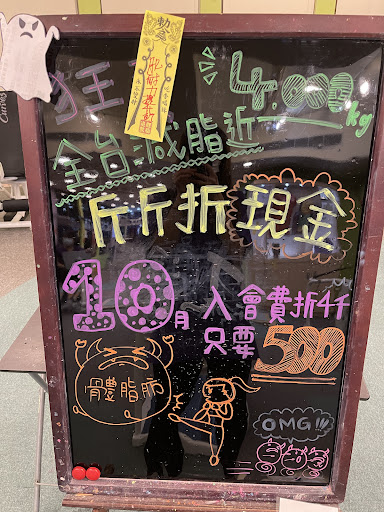 狂
全台減脂近4,000kg
斤斤折現金
10月入會費折4千
只要500
體脂肪
OMG!!!
Curves